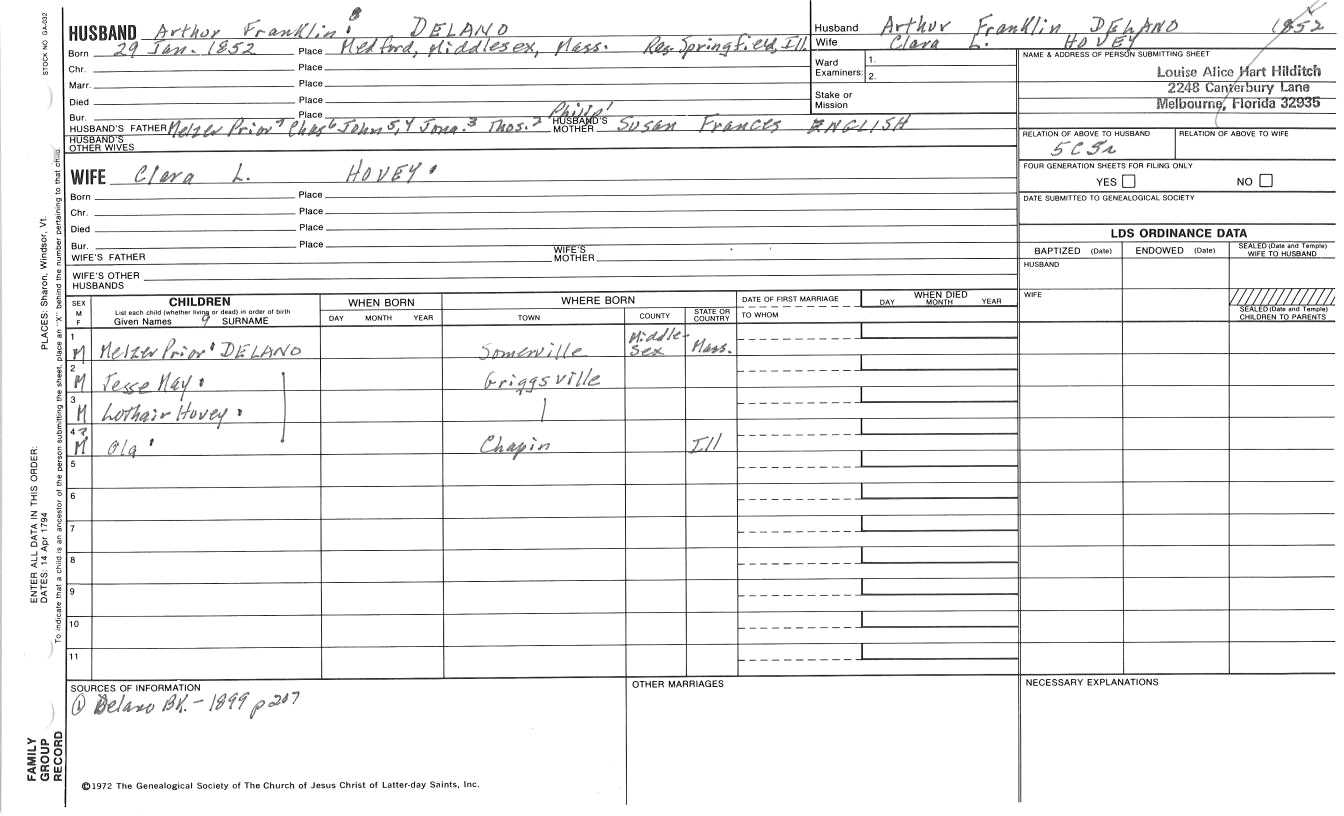 STOCK NO. GA-032
HUSBAND Arthur Franklin 8 DELANO
Born 29 Jan. 1852 Place Medford, Middlesex, Mass. Res. Springfield, Ill.
Chr. Place
Marr. Place
Died Place
Bur. Place
HUSBAND'S FATHER Melzer Prior 7 Chas 6 John 5,4 Jona. 3 Thos. 2 Philip 1 HUSBAND'S MOTHER Susan Frances ENGLISH
HUSBAND'S OTHER WIVES
WIFE Clara L. HOVEY
Born Place
Chr. Place
Died Place
Bur. Place
WIFE'S FATHER WIFE'S MOTHER
WIFE'S OTHER HUSBANDS
Husband Arthur Franklin DELANO 1852
Wife Clara L. HOVEY
Ward Examiners: 1.
2.
Stake or Mission
NAME & ADDRESS OF PERSON SUBMITTING SHEET
Louise Alice Hart Hilditch
2248 Canterbury Lane
Melbourne, Florida 32935
RELATION OF ABOVE TO HUSBAND RELATION OF ABOVE TO WIFE
5C5r
FOUR GENERATION SHEETS FOR FILING ONLY
YES NO
DATE SUBMITTED TO GENEALOGICAL SOCIETY
LDS ORDINANCE DATA
BAPTIZED (Date) ENDOWED (Date) SEALED (Date and Temple) WIFE TO HUSBAND
HUSBAND
WIFE
SEALED (Date and Temple) CHILDREN TO PARENTS
SEX M F
CHILDREN
List each child (whether living or dead) in order of birth
Given Names 9 SURNAME
WHEN BORN
DAY MONTH YEAR
WHERE BORN
TOWN COUNTY STATE OR COUNTRY
DATE OF FIRST MARRIAGE
TO WHOM
WHEN DIED
DAY MONTH YEAR
1 M Melzer Prior DELANO Somerville Middlesex Mass.
2 M Jesse May Griggsville
3 M Lothair Hovey
4 ? M Ola Chapin Ill
5
6
7
8
9
10
11
SOURCES OF INFORMATION
① Delano BK. - 1899 p 207
OTHER MARRIAGES
NECESSARY EXPLANATIONS
©1972 The Genealogical Society of The Church of Jesus Christ of Latter-day Saints, Inc.
PLACES: Sharon, Windsor, Vt.
ENTER ALL DATA IN THIS ORDER:
DATES: 14 Apr 1794
To indicate that a child is an ancestor of the person submitting the sheet, place an "X" behind the number pertaining to that child.
FAMILY
GROUP
RECORD